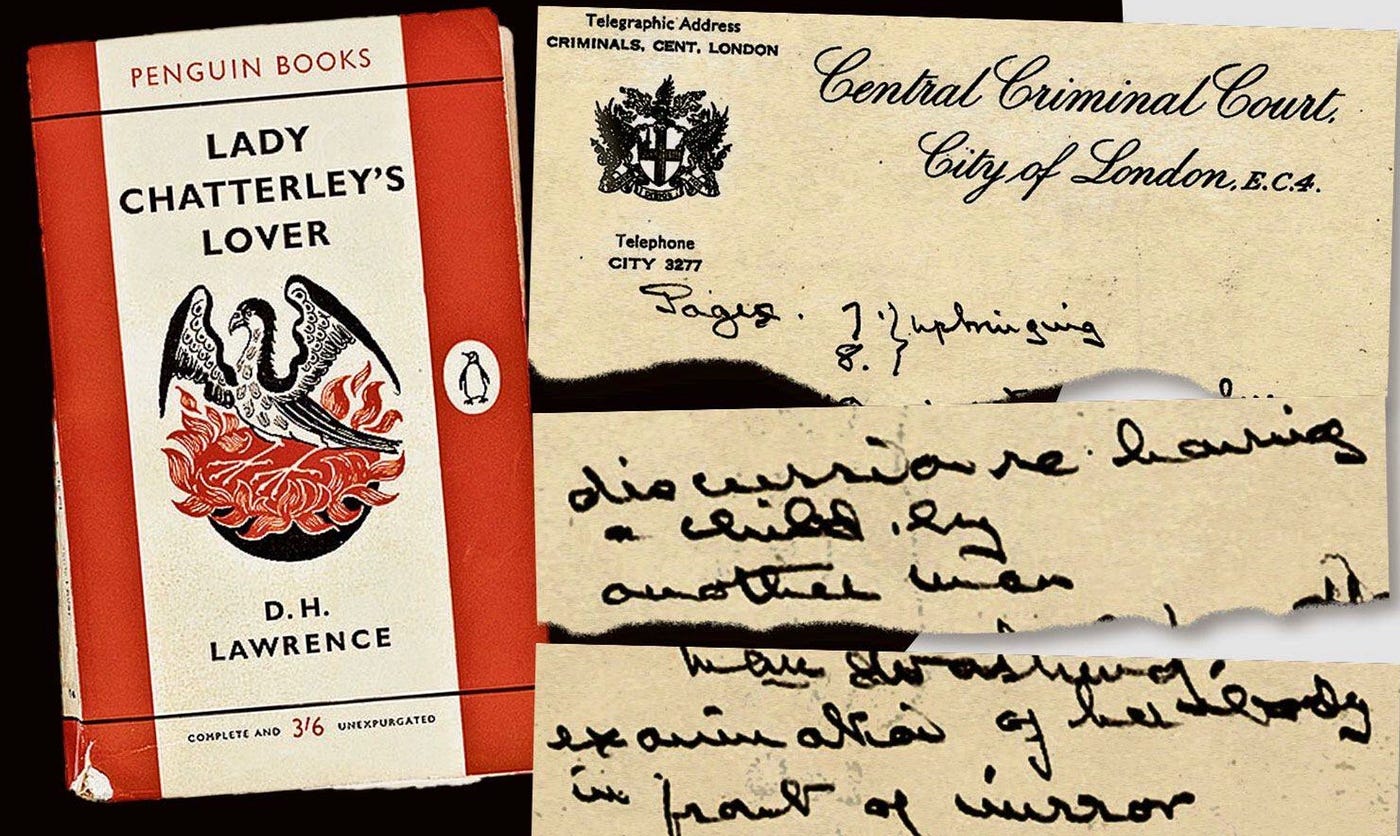 PENGUIN BOOKS
LADY
CHATTERLEY'S
LOVER
D. H.
LAWRENCE
COMPLETE AND 3'6 UNEXPURGATED
Telegraphic Address
CRIMINALS, CENT. LONDON
Central Criminal Court,
City of London, E.C.4.
Telephone
CITY 3277
Pages. 7.} upbringing
8.}
discussion re having
a child by
another man
man washing.
examination of her body
in front of mirror